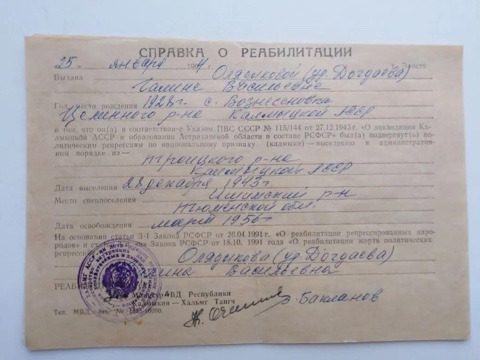 СПРАВКА О РЕАБИЛИТАЦИИ
25 января 199
Выдана Оляднковой (ур. Догдаева)
Галине Васильевне
Год и место рождения 1928 г. с. Вознесеновка
Целинного р-на Калмыцкой АССР
в том, что он(а) в соответствии с Указом ПВС СССР № 115/144 от 27.12.1943 г. «О ликвидации Кал-
мыцкой АССР и образовании Астраханской области в составе РСФСР» был(а) подвергнут(а) по-
литическим репрессиям по национальному признаку (калмыки) — выселению в административ-
ном порядке из
Троицкого р-на
Калмыцкой АССР
Дата выселения 28 декабря 1943 г.
Место спецпоселения Ишимский р-н
Тюменской обл.
Дата освобождения март 1956 г.
На основании статьи 3-1 Закона РСФСР от 26.04.1991 г. «О реабилитации репрессированных
народов» и Закона РСФСР от 18.10. 1991 года «О реабилитации жертв политичес-
репрессий»
(ур. Догдаева)
Галина Васильевна
РЕАБИЛИ
Министр ВД Республики
Калмыкия — Хальмг Тангч
Бакланов
Тип. МВД